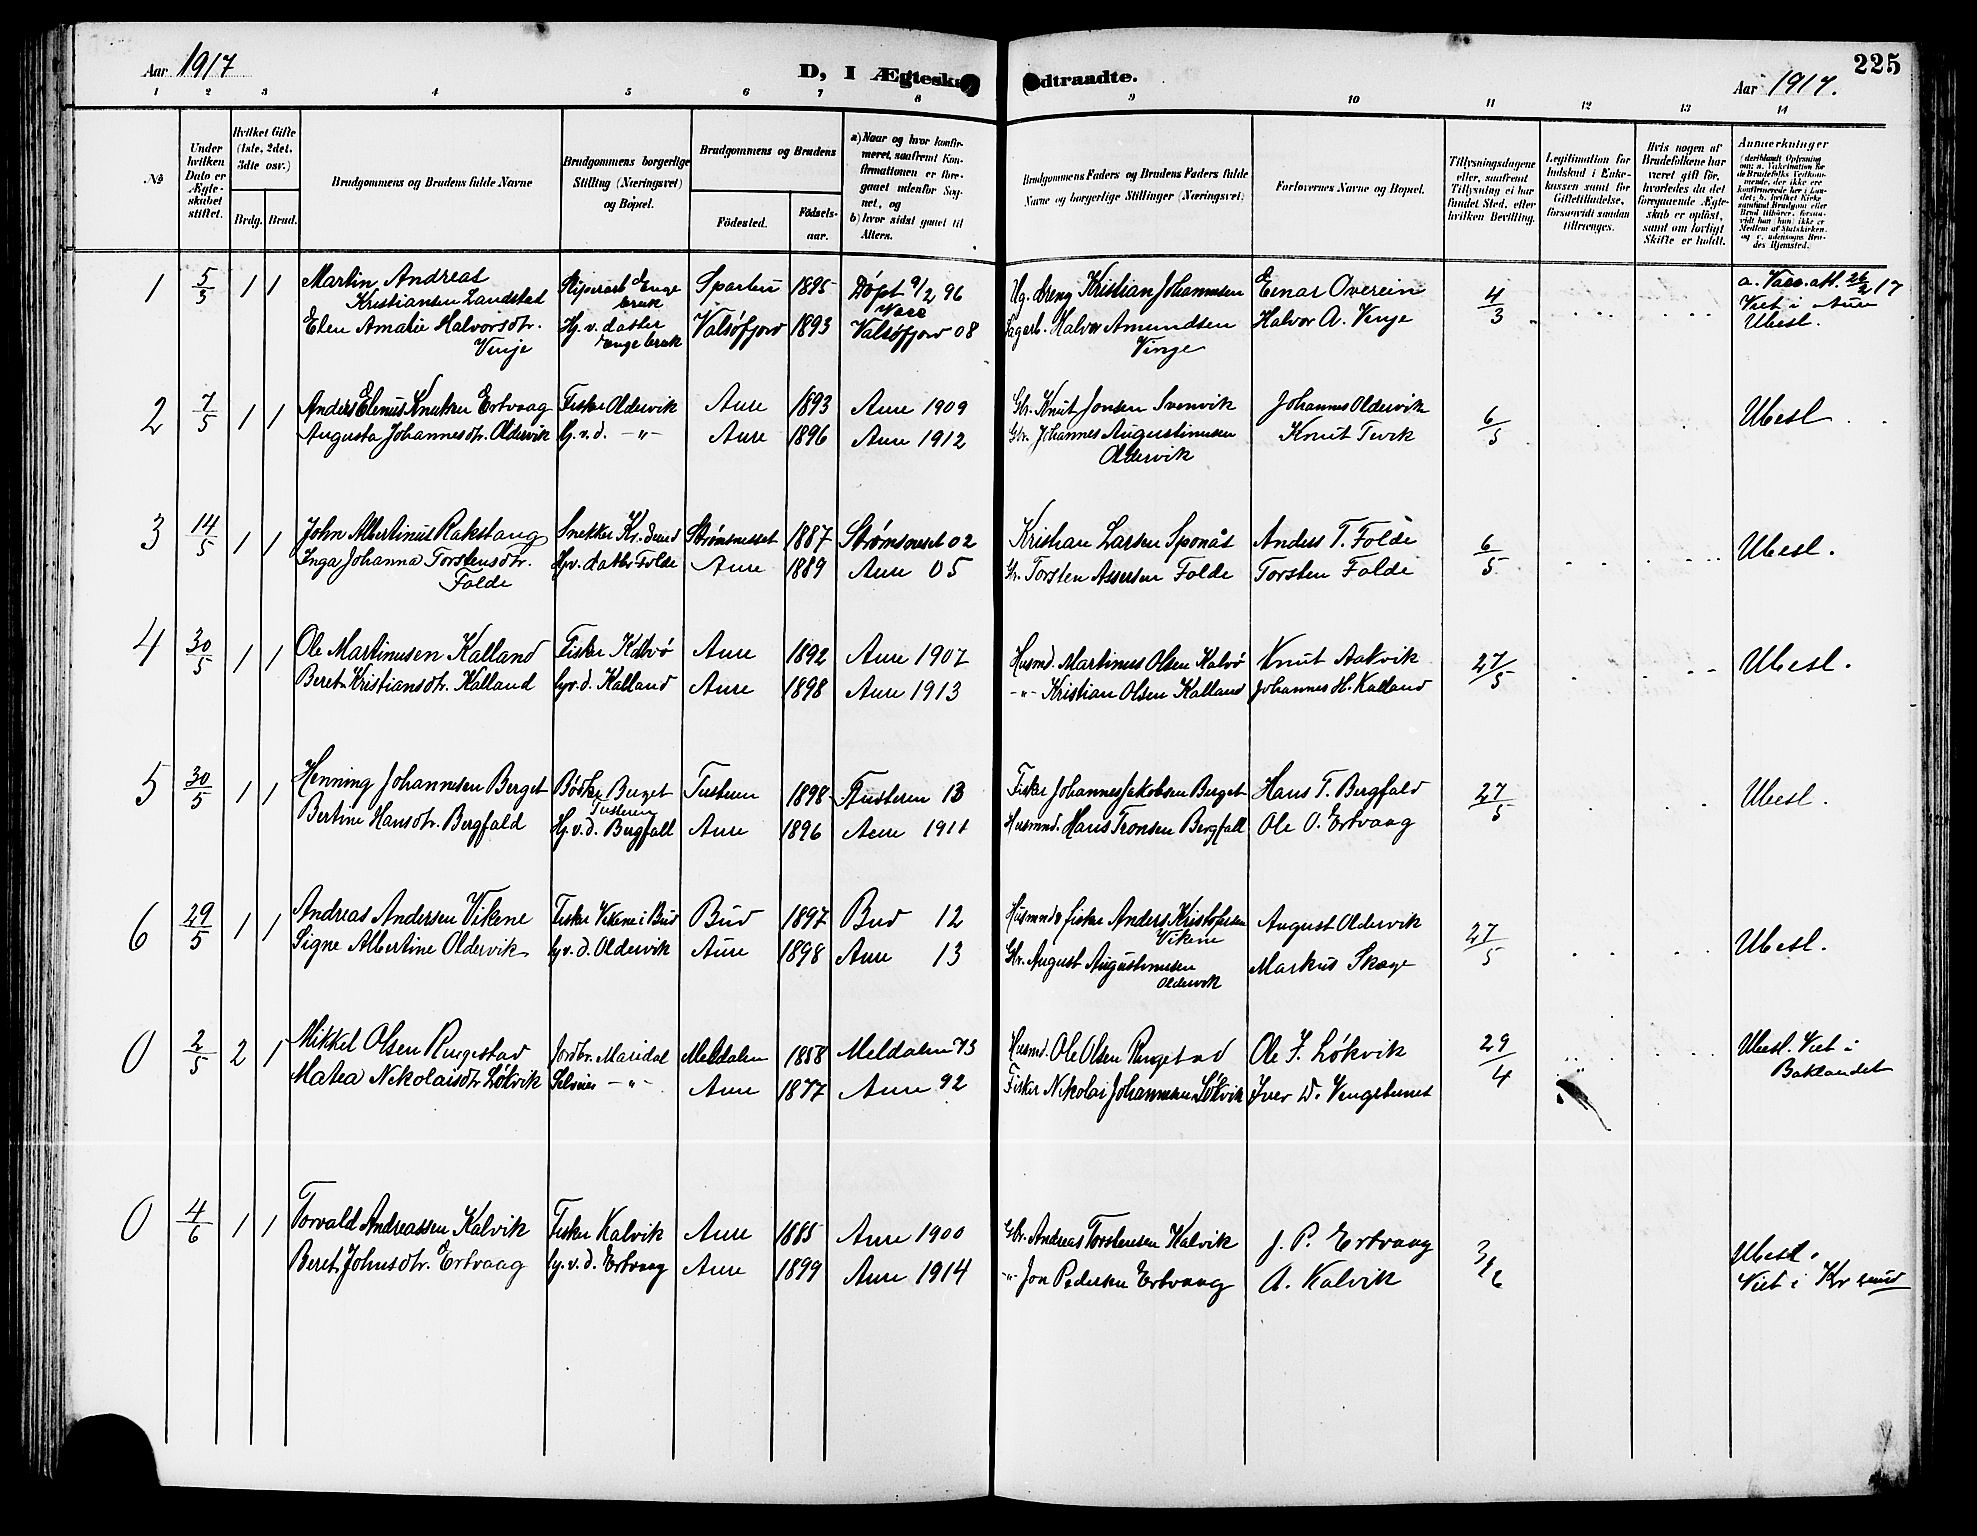 Aar 1917
D, I Ægteskab Indtraadte.
Aar 1917.
225
1 2 3 4 5 6 7 8 9 10 11 12 13 14
№
Under hvilken Dato er Ægteskabet stiftet.
Hvilket Gifte (1ste, 2det, 3die osv.)
Brdg. Brud.
Brudgommens og Brudens fulde Navne
Brudgommens borgerlige Stilling (Næringsvei) og Bopæl.
Brudgommens og Brudens
Födested.
Födselsaar.
a) Naar og hvor konfirmeret, saafremt Konfirmationen er foregaaet udenfor Sognet, og
b) hvor sidst gaaet til Alters.
Brudgommens Faders og Brudens Faders fulde Navne og borgerlige Stillinger (Næringsvei)
Forlovernes Navne og Bopæl.
Tillysningsdagene eller, saafremt Tillysning ei har fundet Sted, efter hvilken Bevilling.
Legitimation for Indskud i Enkekassen samt for Giftetilladelse, forsaavidt saadan tiltrænges.
Hvis nogen af Brudefolkene har været gift før, hvorledes da det foregaaende Ægteskab er oplöst, samt om lovligt Skifte er holdt.
Anmærkninger
1 5/3 1 1 Martin Andreas Kristiansen Landstad Sparbu 1895 Døpt 9/2 96 Kristian Johannesen Einar Overein 4/3 a. Vacc. att. 26/2 17
Elen Amalie Halvorsdtr. Vinje Hj. v. datter Valsøfjord 1893 Valsøfjord 08 Halvor Amundsen Vinje Halvor A. Vinje Viet i Aure Ubesl.
2 7/5 1 1 Anders Elenus Knutsen Ertvaag Fisker Oldervik Aure 1893 Aure 1909 Gbr. Knut Jonsen Svenvik Johannes Oldervik 6/5 Ubesl
Augusta Johannesdtr. Oldervik Hj. v. d. -"- Aure 1896 Aure 1912 Gbr. Johannes Augustinusen Oldervik Knut
3 14/5 1 1 John Albertinus Rakstang Snekker Kr. sund Strømsneset 1887 Strømsneset 02 Kristian Larsen Sponås Anders T. Folde 6/5 Ubesl.
Inga Johanna Torstensdtr. Folde Hj. v. datter Folde Aure 1889 Aure 05 Gbr. Torsten Assersen Folde Torsten Folde
4 30/5 1 1 Ole Martinusen Kalland Fisker Kalvø Aure 1892 Aure 1907 Husmd. Martinus Olsen Kalvø Knut Aakvik 27/5 Ubesl.
Beret Kristiansdtr. Kalland Hj. v. d. Kalland Aure 1898 Aure 1913 -"- Kristian Olsen Kalland Johannes H. Kalland
5 30/5 1 1 Henning Johannesen Berget Bødker Berget Tusteren Tusteren 1898 Tusteren 13 Fisker Johannes Jakobsen Berget Hans T. Bergfald 27/5 Ubesl.
Bertine Hansdtr. Bergfald Hj. v. d. Bergfall Aure 1896 Aure 1911 Husmnd. Hans Tronsen Bergfall Ole O. Ertvaag
6 29/5 1 1 Andreas Andersen Vikene Fisker Vikene i Bud Bud 1897 Bud 12 Husmnd & fisker Anders Kristofersen Vikene August Oldervik 27/5 Ubesl.
Signe Albertine Oldervik Hj. v. d. Oldervik Aure 1898 Aure 13 Gbr. August Augustinusen Oldervik Markus Skage
0 2/5 2 1 Mikkel Olsen Ringestad Jordbr. Maridal Meldalen 1858 Meldalen 73 Husmd. Ole Olsen Ringestad Ole J. Løkvik 29/4 Ubesl. Viet i
Matea Nikolaisdtr Løkvik -"- Aure 1877 Aure 92 Fisker Nikolai Johannesen Løkvik Iver D. Baklandet
0 4/6 1 1 Torvald Andreassen Kalvik Fisker Kalvik Aure 1885 Aure 1900 Gbr. Andreas Torstensen Kalvik J. P. Ertvaag 3/6 Ubesl.
Beret Johnsdtr. Ertvaag Hj. v. d. Ertvaag Aure 1899 Aure 1914 -"- Jon Pedersen Ertvaag A. Kalvik Viet i Kr sund